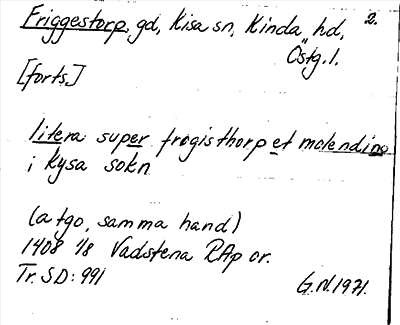 Friggestorp, gd, Kisa sn, Kinda hd, 2.
Östg. l.
[forts.]
litera super frøgisthorp et molendino
i Kysa sokn
(a tgo, samma hand)
1408 1/8 Vadstena RAp or.
Tr. SD: 991
G.N. 1971.